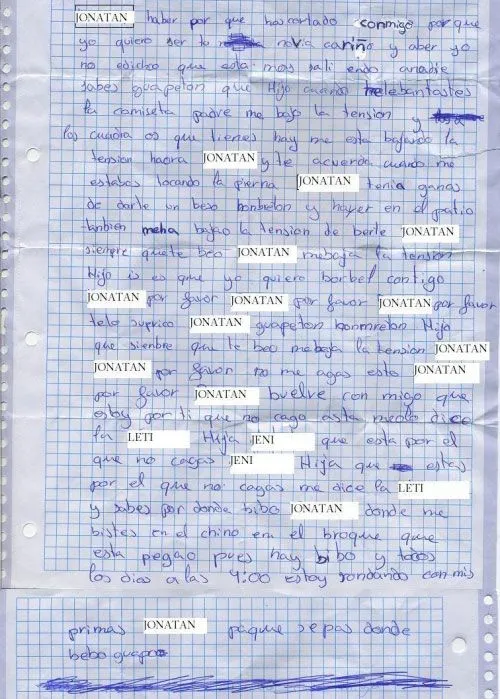 JONATAN haber por que hascortado conmigo porque
yo quiero ser tu novia cariño y aber yo
no edicho que esta mos sali endo anadie
sabes guapeton que Hijo cuando melebantastes
la camiseta padre me bajo la tension y
los cuadra os que tienes hay me esta bajando la
tension haora JONATAN y te acuerda cuando me
estabas tocando la pierna JONATAN tenia ganas
de darte un beso bonbrelon y hayer en el patio
tanbien meha bajao la tension de berte JONATAN
siempre quete beo JONATAN mebaja la tension
Hijo is es que yo quiero borbel contigo
JONATAN por favor JONATAN por favor JONATAN por favor
telo suprico JONATAN guapeton bonmrelon Hijo
que sienbre que te beo mebaja la tension JONATAN
JONATAN por favor no me agas esto JONATAN
por favor JONATAN buelve con migo que
estoy por ti que no cago asta melo dice
la LETI Hija JENI que esta por el
que no cagas JENI Hija que estas
por el que no cagas me dice la LETI
y sabes por donde bibo JONATAN donde me
bistes en el chino en el broque que
esta pegao pues hay bibo y todos
los dias a las 4:00 estoy rondando con mis
primas JONATAN paque sepas donde
bebo guapo